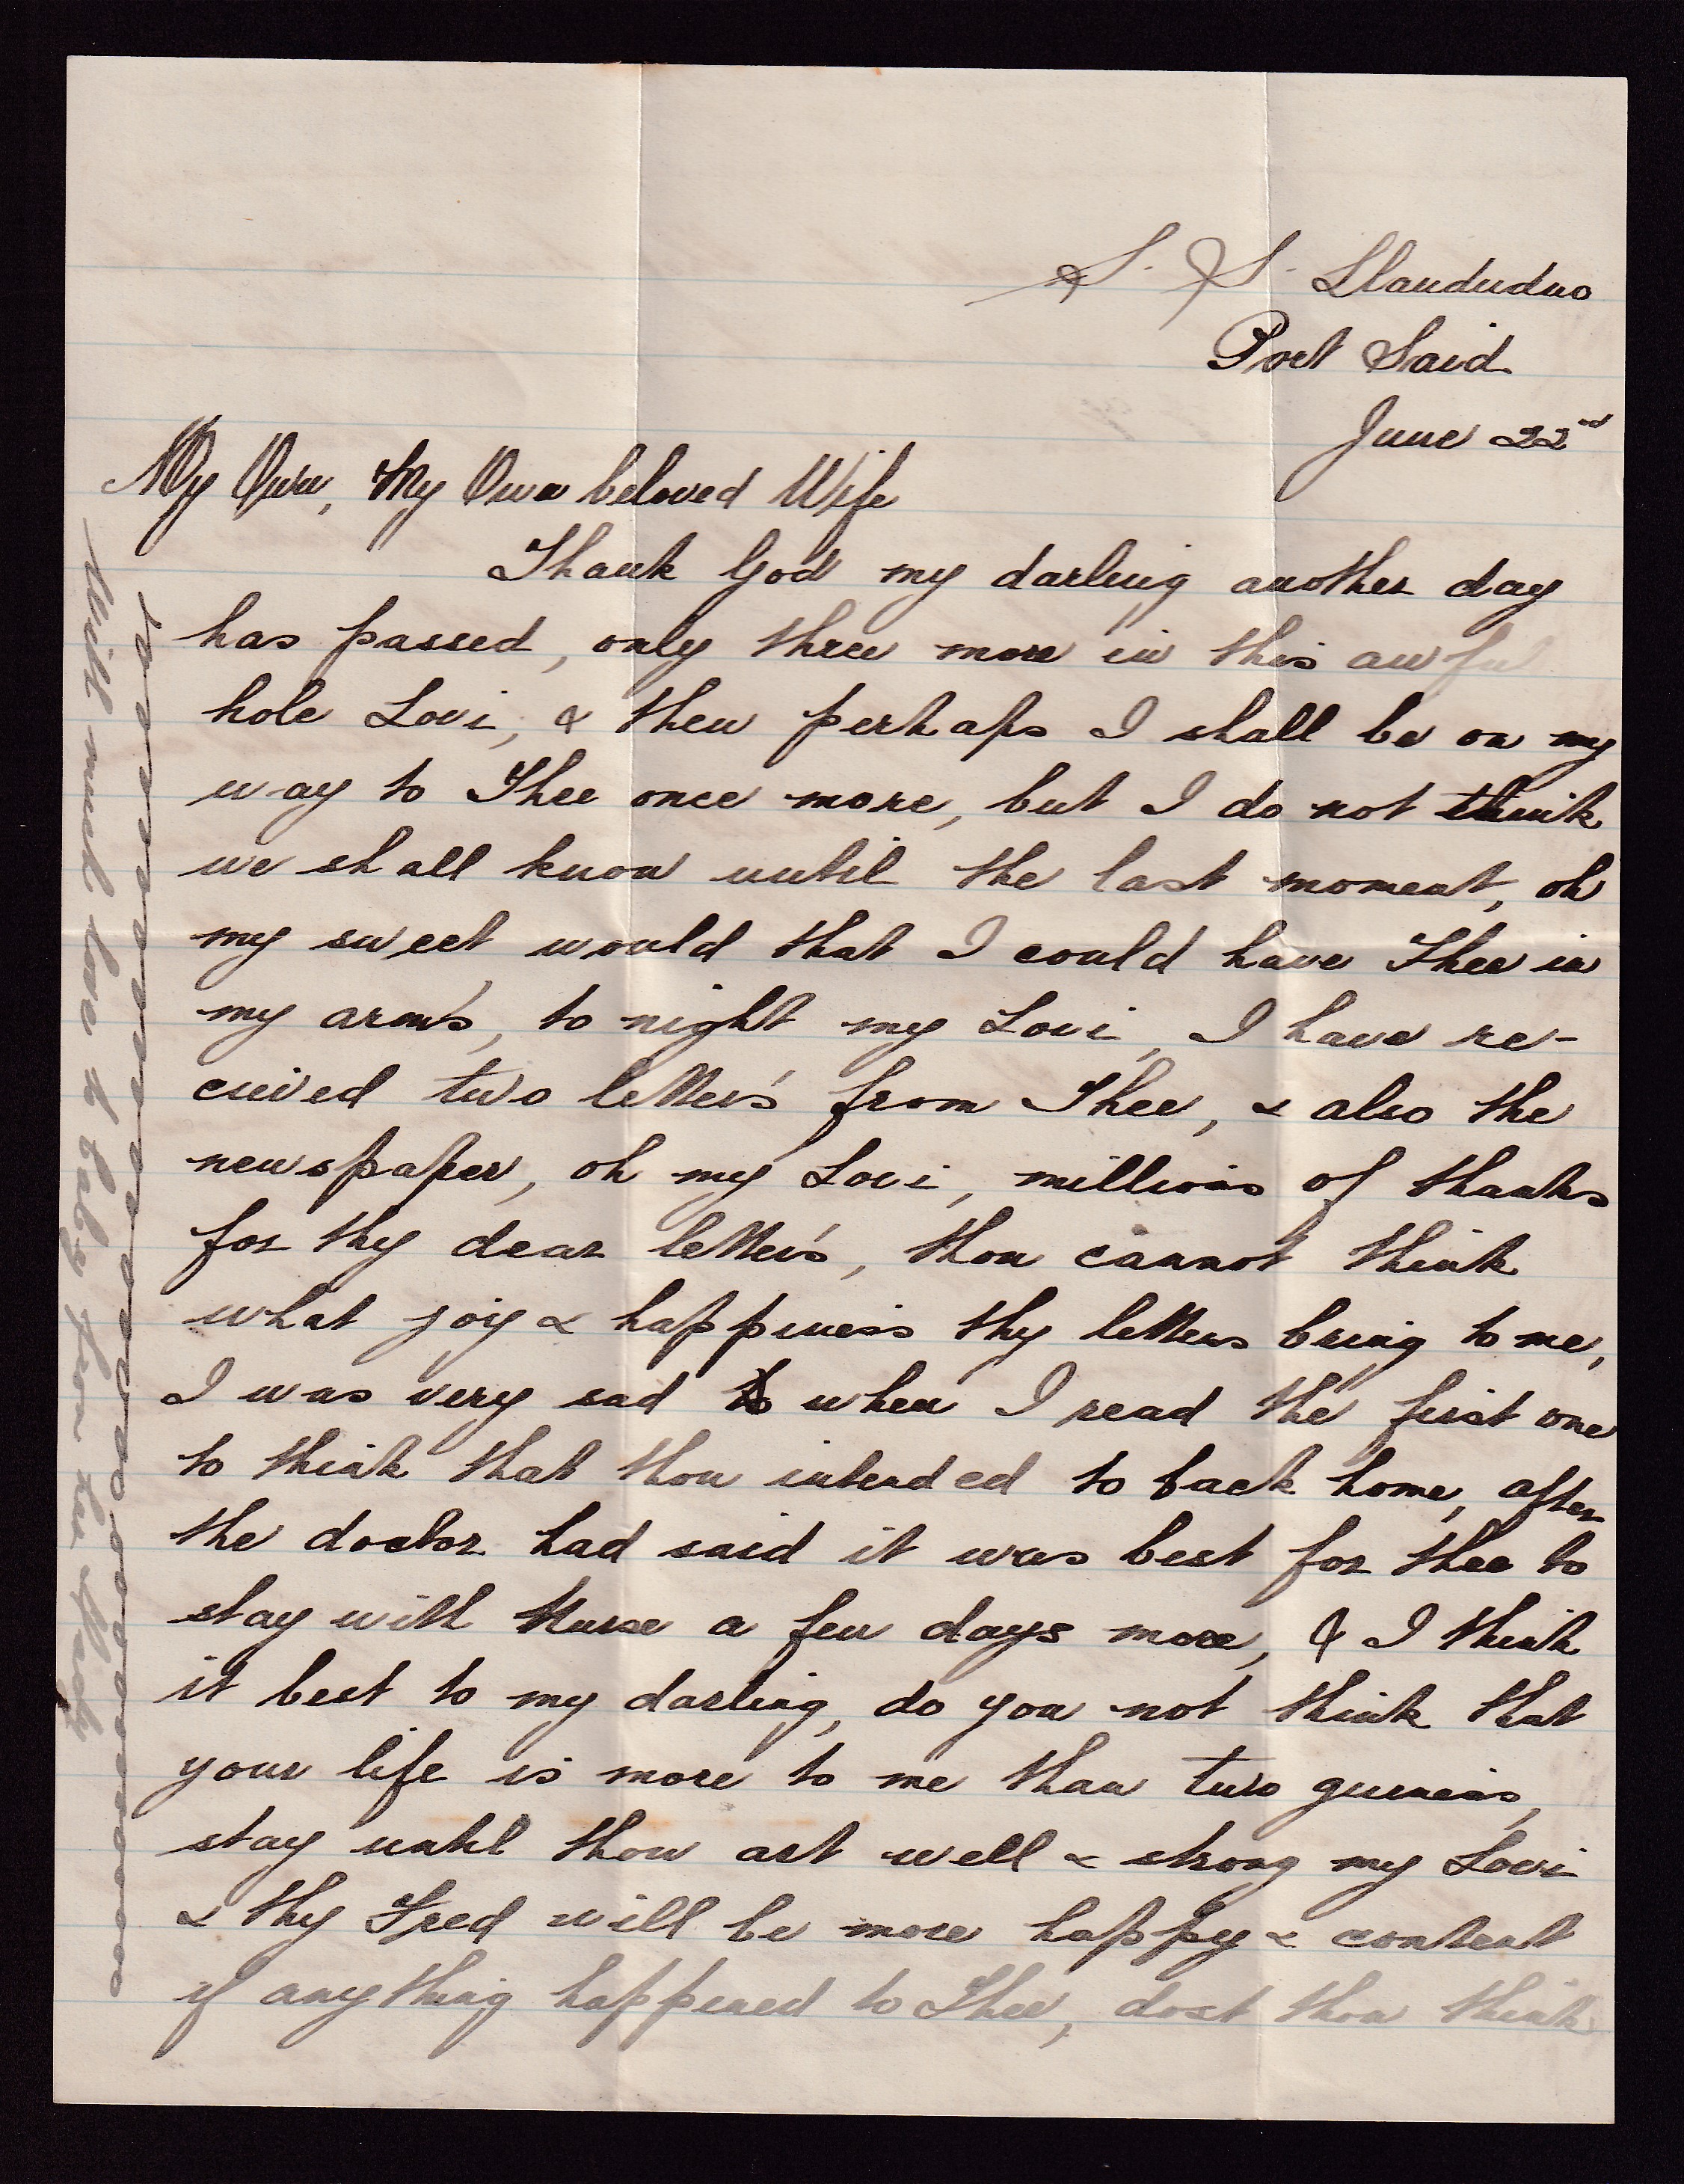 S. S. Llandudno
Port Said
June 22nd
My Own, My Own beloved Wife
Thank God my darling another day
has passed, only three more in this awful
hole Lovi, & then perhaps I shall be on my
way to Thee once more, but I do not think
we shall know until the last moment, oh
my sweet would that I could have Thee in
my arm's, to night my Lovi, I have re-
cuived two letter's from Thee, & also the
newspaper, oh my Lovi, millions of thanks
for thy dear letter's, thou cannot think
what joy & happiness thy letters bring to me,
I was very sad when I read the first one
to think that thou intended to back home, after
the doctor had said it was best for thee to
stay with Nurse a few days more, & I think
it best to my darling, do you not think that
your life is more to me than two guineas,
stay until thou art well & strong my Lovi
& thy Fred will be more happy & content
if anything happened to Thee, dost thou think
With much love to baby from his Dady